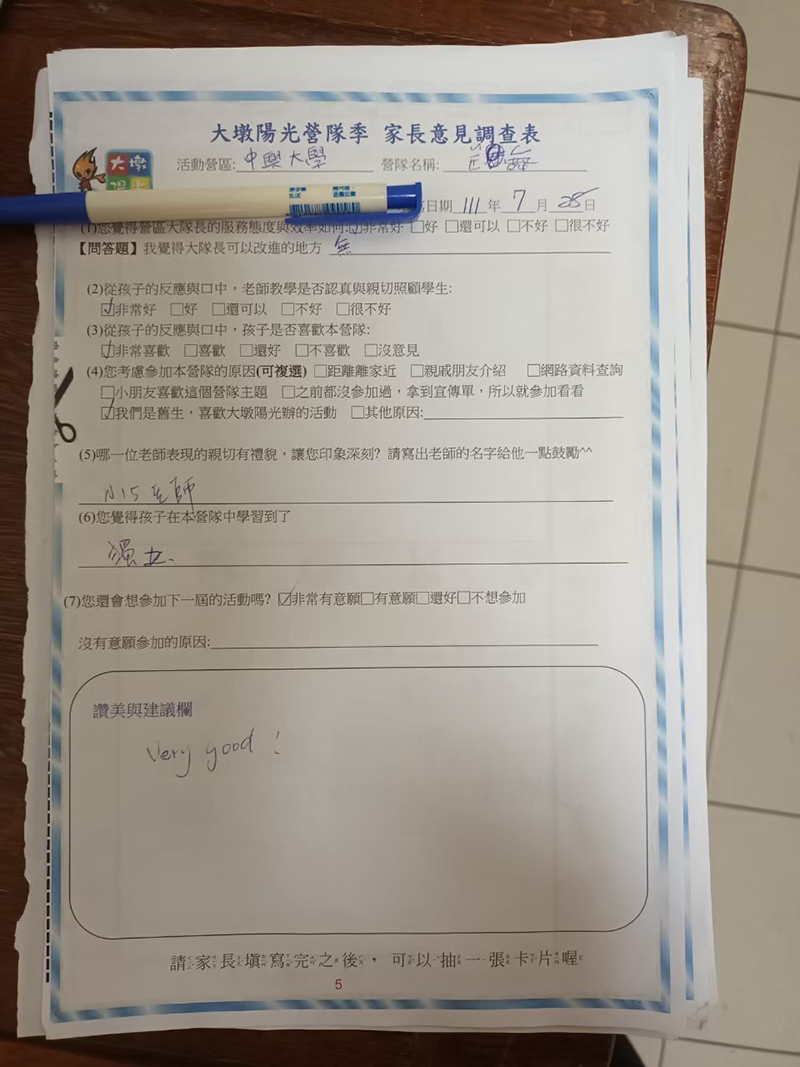 大墩陽光營隊季 家長意見調查表
大墩
活動營區: 中興大學 營隊名稱:
日期 111 年 7 月 28 日
(1)您覺得營區大隊長的服務態度與效率如何:☑非常好 □好 □還可以 □不好 □很不好
【問答題】我覺得大隊長可以改進的地方 無
(2)從孩子的反應與口中，老師教學是否認真與親切照顧學生:
☑非常好 □好 □還可以 □不好 □很不好
(3)從孩子的反應與口中，孩子是否喜歡本營隊:
☑非常喜歡 □喜歡 □還好 □不喜歡 □沒意見
(4)您考慮參加本營隊的原因(可複選) □距離離家近 □親戚朋友介紹 □網路資料查詢
□小朋友喜歡這個營隊主題 □之前都沒參加過，拿到宣傳單，所以就參加看看
☑我們是舊生，喜歡大墩陽光辦的活動 □其他原因:
(5)哪一位老師表現的親切有禮貌，讓您印象深刻? 請寫出老師的名字給他一點鼓勵^^
N15老師
(6)您覺得孩子在本營隊中學習到了
獨立.
(7)您還會想參加下一屆的活動嗎? ☑非常有意願□有意願□還好□不想參加
沒有意願參加的原因:
讚美與建議欄
Very good !
請家長填寫完之後，可以抽一張卡片喔
5